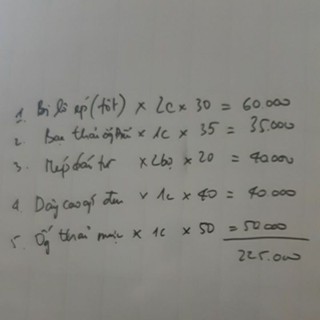 1. Bi lô ép (tốt) × 2c × 30 = 60.000
2. Bao thải × 1c × 35 = 35.000
3. Nẹp × 2bộ × 20 = 40.000
4. Dây cao đen × 1c × 40 = 40.000
5. Ống thải × 1c × 50 = 50.000
225.000